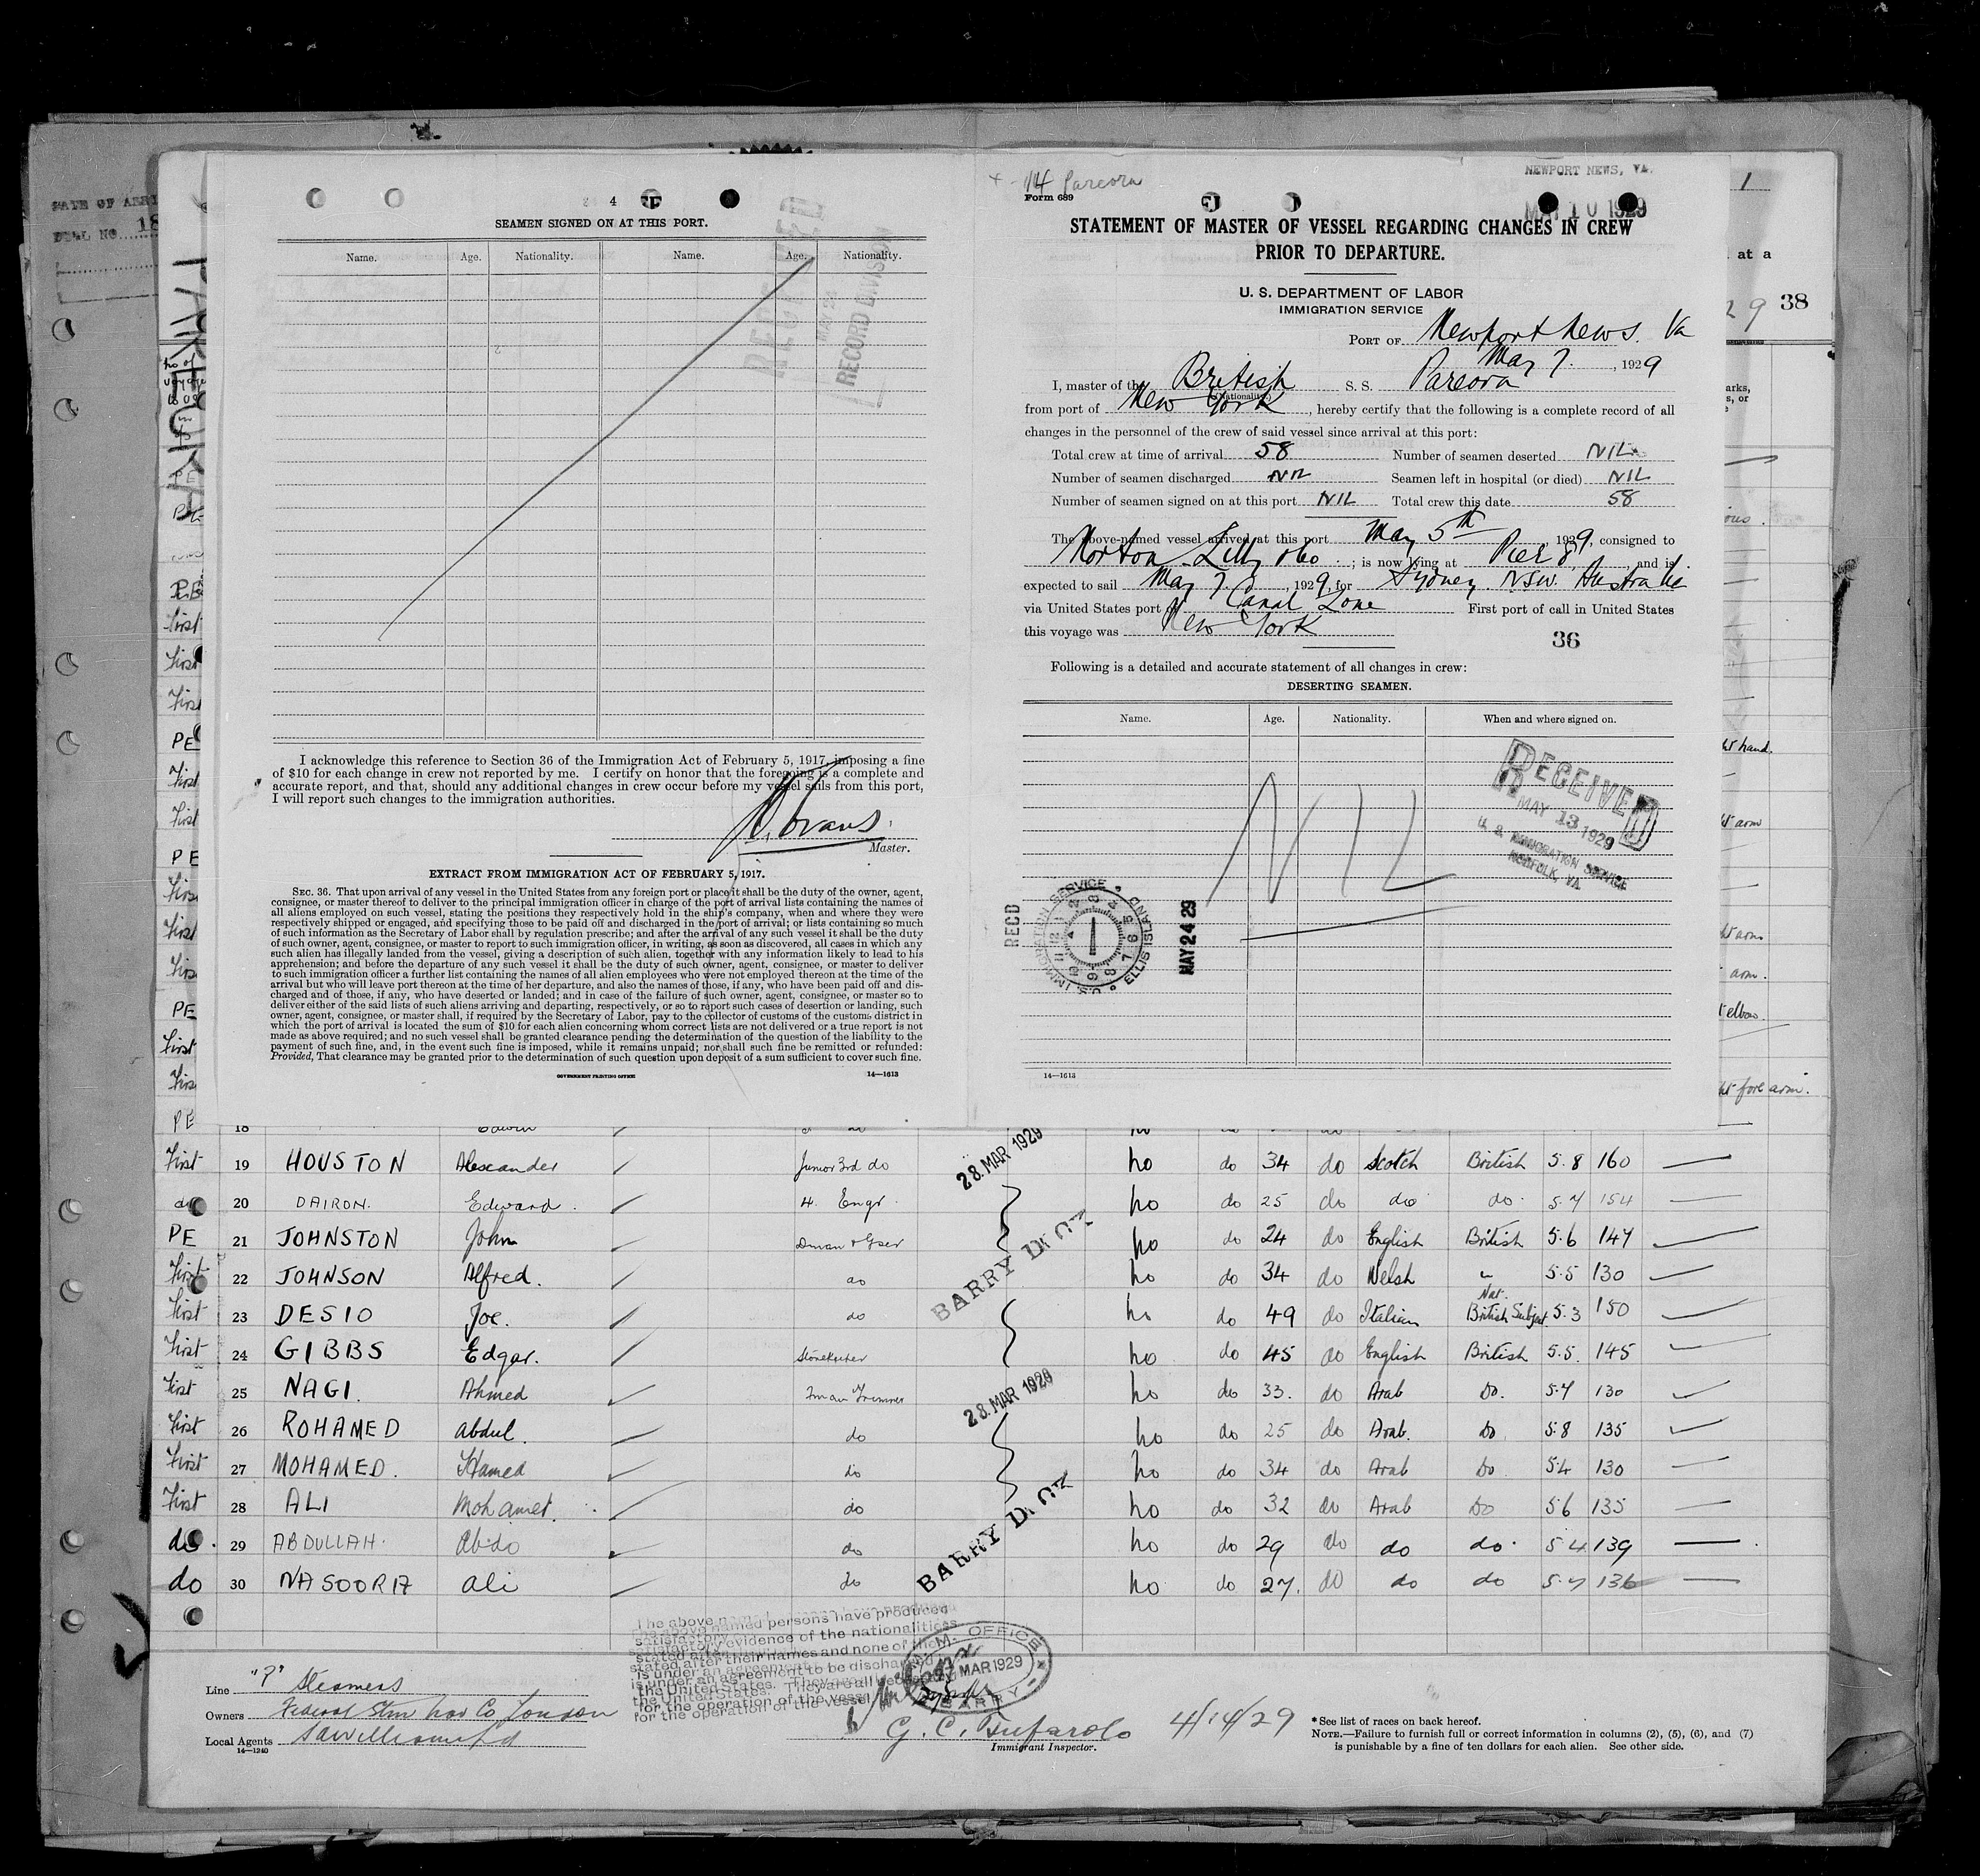 4
SEAMEN SIGNED ON AT THIS PORT.
Name. Age. Nationality. Name. Age. Nationality.
RECEIVED
RECORD DIVISION
I acknowledge this reference to Section 36 of the Immigration Act of February 5, 1917, imposing a fine
of $10 for each change in crew not reported by me. I certify on honor that the foregoing is a complete and
accurate report, and that, should any additional changes in crew occur before my vessel sails from this port,
I will report such changes to the immigration authorities.
Evans
Master.
EXTRACT FROM IMMIGRATION ACT OF FEBRUARY 5, 1917.
SEC. 36. That upon arrival of any vessel in the United States from any foreign port or place it shall be the duty of the owner, agent,
consignee, or master thereof to deliver to the principal immigration officer in charge of the port of arrival lists containing the names of
all aliens employed on such vessel, stating the positions they respectively hold in the ship's company, when and where they were
respectively shipped or engaged, and specifying those to be paid off and discharged in the port of arrival; or lists containing so much
of such information as the Secretary of Labor shall by regulation prescribe; and after the arrival of any such vessel it shall be the duty
of such owner, agent, consignee, or master to report to such immigration officer, in writing, as soon as discovered, all cases in which any
such alien has illegally landed from the vessel, giving a description of such alien, together with any information likely to lead to his
apprehension; and before the departure of any such vessel it shall be the duty of such owner, agent, consignee, or master to deliver
to such immigration officer a further list containing the names of all alien employees who were not employed thereon at the time of the
arrival but who will leave port thereon at the time of her departure, and also the names of those, if any, who have been paid off and dis-
charged and of those, if any, who have deserted or landed; and in case of the failure of such owner, agent, consignee, or master so to
deliver either of the said lists of such aliens arriving and departing, respectively, or so to report such cases of desertion or landing, such
owner, agent, consignee, or master shall, if required by the Secretary of Labor, pay to the collector of customs of the customs district in
which the port of arrival is located the sum of $10 for each alien concerning whom correct lists are not delivered or a true report is not
made as above required; and no such vessel shall be granted clearance pending the determination of the question of the liability to the
payment of such fine, and, in the event such fine is imposed, while it remains unpaid; nor shall such fine be remitted or refunded:
Provided, That clearance may be granted prior to the determination of such question upon deposit of a sum sufficient to cover such fine.
GOVERNMENT PRINTING OFFICE 14—1613
14 Pareora
Form 689
NEWPORT NEWS, VA.
MAY 10 1929
STATEMENT OF MASTER OF VESSEL REGARDING CHANGES IN CREW
PRIOR TO DEPARTURE.
U. S. DEPARTMENT OF LABOR
IMMIGRATION SERVICE
PORT OF Newport News. Va
May 7. , 1929
I, master of the British S. S. Pareora
(Nationality.)
from port of New York , hereby certify that the following is a complete record of all
changes in the personnel of the crew of said vessel since arrival at this port:
Total crew at time of arrival 58 Number of seamen deserted NIL
Number of seamen discharged NIL Seamen left in hospital (or died) NIL
Number of seamen signed on at this port NIL Total crew this date 58
The above-named vessel arrived at this port May 5th , 1929, consigned to
Norton Lilly & Co ; is now lying at Pier 8 , and is
expected to sail May 7 , 1929, for Sydney, NSW. Australia
via United States port of Canal Zone First port of call in United States
this voyage was New York
36
Following is a detailed and accurate statement of all changes in crew:
DESERTING SEAMEN.
Name. Age. Nationality. When and where signed on.
NIL
RECEIVED
MAY 13 1929
U. S. IMMIGRATION SERVICE
NORFOLK, VA
RECD
U.S. IMMIGRATION SERVICE ELLIS ISLAND
MAY 24 29
14—1613
1
at a
29 38
hand.
arm
arm
arm.
elbow.
fore arm.
PE 18 Edwin
First 19 HOUSTON Alexander Junior 3rd do 28 MAR 1929 no do 34 do Scotch British 5.8 160
do 20 DAIRON. Edward. 4. Engr. no do 25 do do do. 5.7 154
PE 21 JOHNSTON John no do 24 do English British 5.6 147
First 22 JOHNSON Alfred. do BARRY DOCK no do 34 do Welsh " 5.5 130
First 23 DESIO Joe. do no do 49 do Italian Nat. British Subject 5.3 150
First 24 GIBBS Edgar. Storekeeper no do 45 do English British 5.5. 145
First 25 NAGI. Ahmed Fman Trimmer 28 MAR 1929 no do 33. do Arab Do. 5.7 130
First 26 ROHAMED abdul. do no do 25 do Arab. Do 5.8 135
First 27 MOHAMED. Hamed do no do 34 do Arab Do 5.4 130
First 28 ALI Mohamet. do BARRY DOCK no do 32 do Arab Do 5.6 135
do. 29 ABDULLAH. Abdo do no do 29 do do do. 5 4 139
do 30 NASOORIA ali do no do 27. do do do 5.7 136
The above named persons have produced
satisfactory evidence of the nationalities
stated after their names and none of them
is under an agreement to be discharged in
the United States. They are all
for the operation of the vessel
M. M. OFFICE MAR 1929 BARRY
Line "P" Steamers
Owners Federal Stm Nav Co London
Local Agents
14—1240
G. C. Tufarolo 4/14/29
Immigrant Inspector.
*See list of races on back hereof.
NOTE.—Failure to furnish full or correct information in columns (2), (5), (6), and (7)
is punishable by a fine of ten dollars for each alien. See other side.